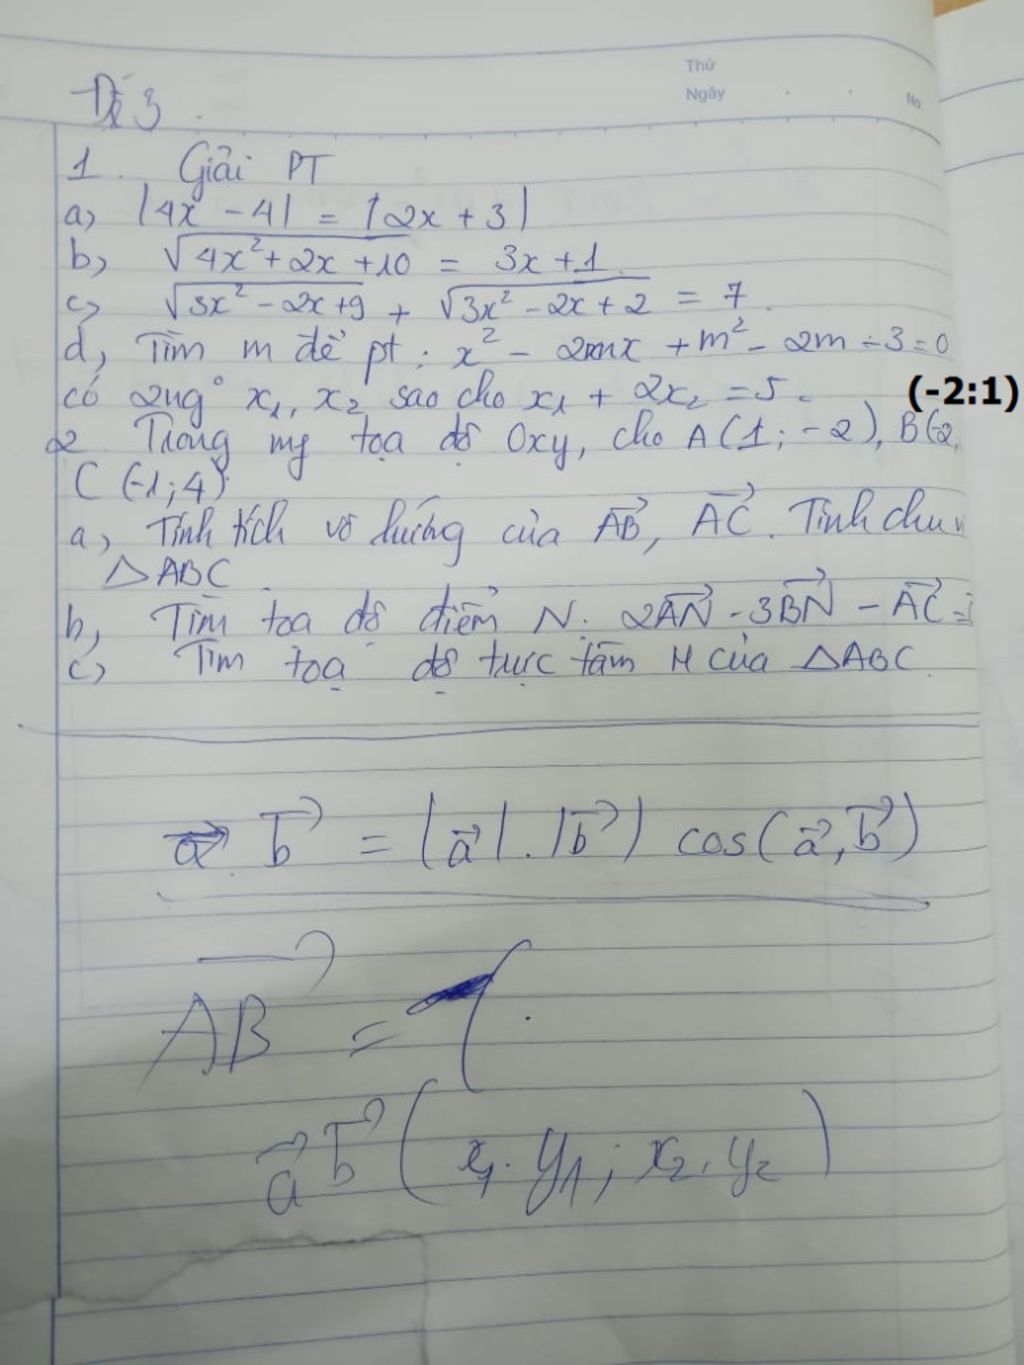 Thứ
Ngày
No.
Đề 3
1. Giải PT
a, |4x - 4| = |2x + 3|
b, √4x² + 2x + 10 = 3x + 1
c, √3x² - 2x + 9 + √3x² - 2x + 2 = 7
d, Tìm m để pt : x² - 2mx + m² - 2m - 3 = 0
có 2 ng° x₁, x₂ sao cho x₁ + 2x₂ = 5.
(-2:1)
2 Trong mg tọa độ Oxy, cho A(1; -2), B(-2;
C (-1; 4)
a, Tính tích vô hướng của AB, AC. Tính chu vi
△ABC
b, Tìm tọa độ điểm N. 2AN - 3BN - AC =
c, Tìm tọa độ trực tâm H của △ABC.
a . b = |a| . |b| cos(a, b)
AB = (
a b ( x₁ . y₁ ; x₂ . y₂ )